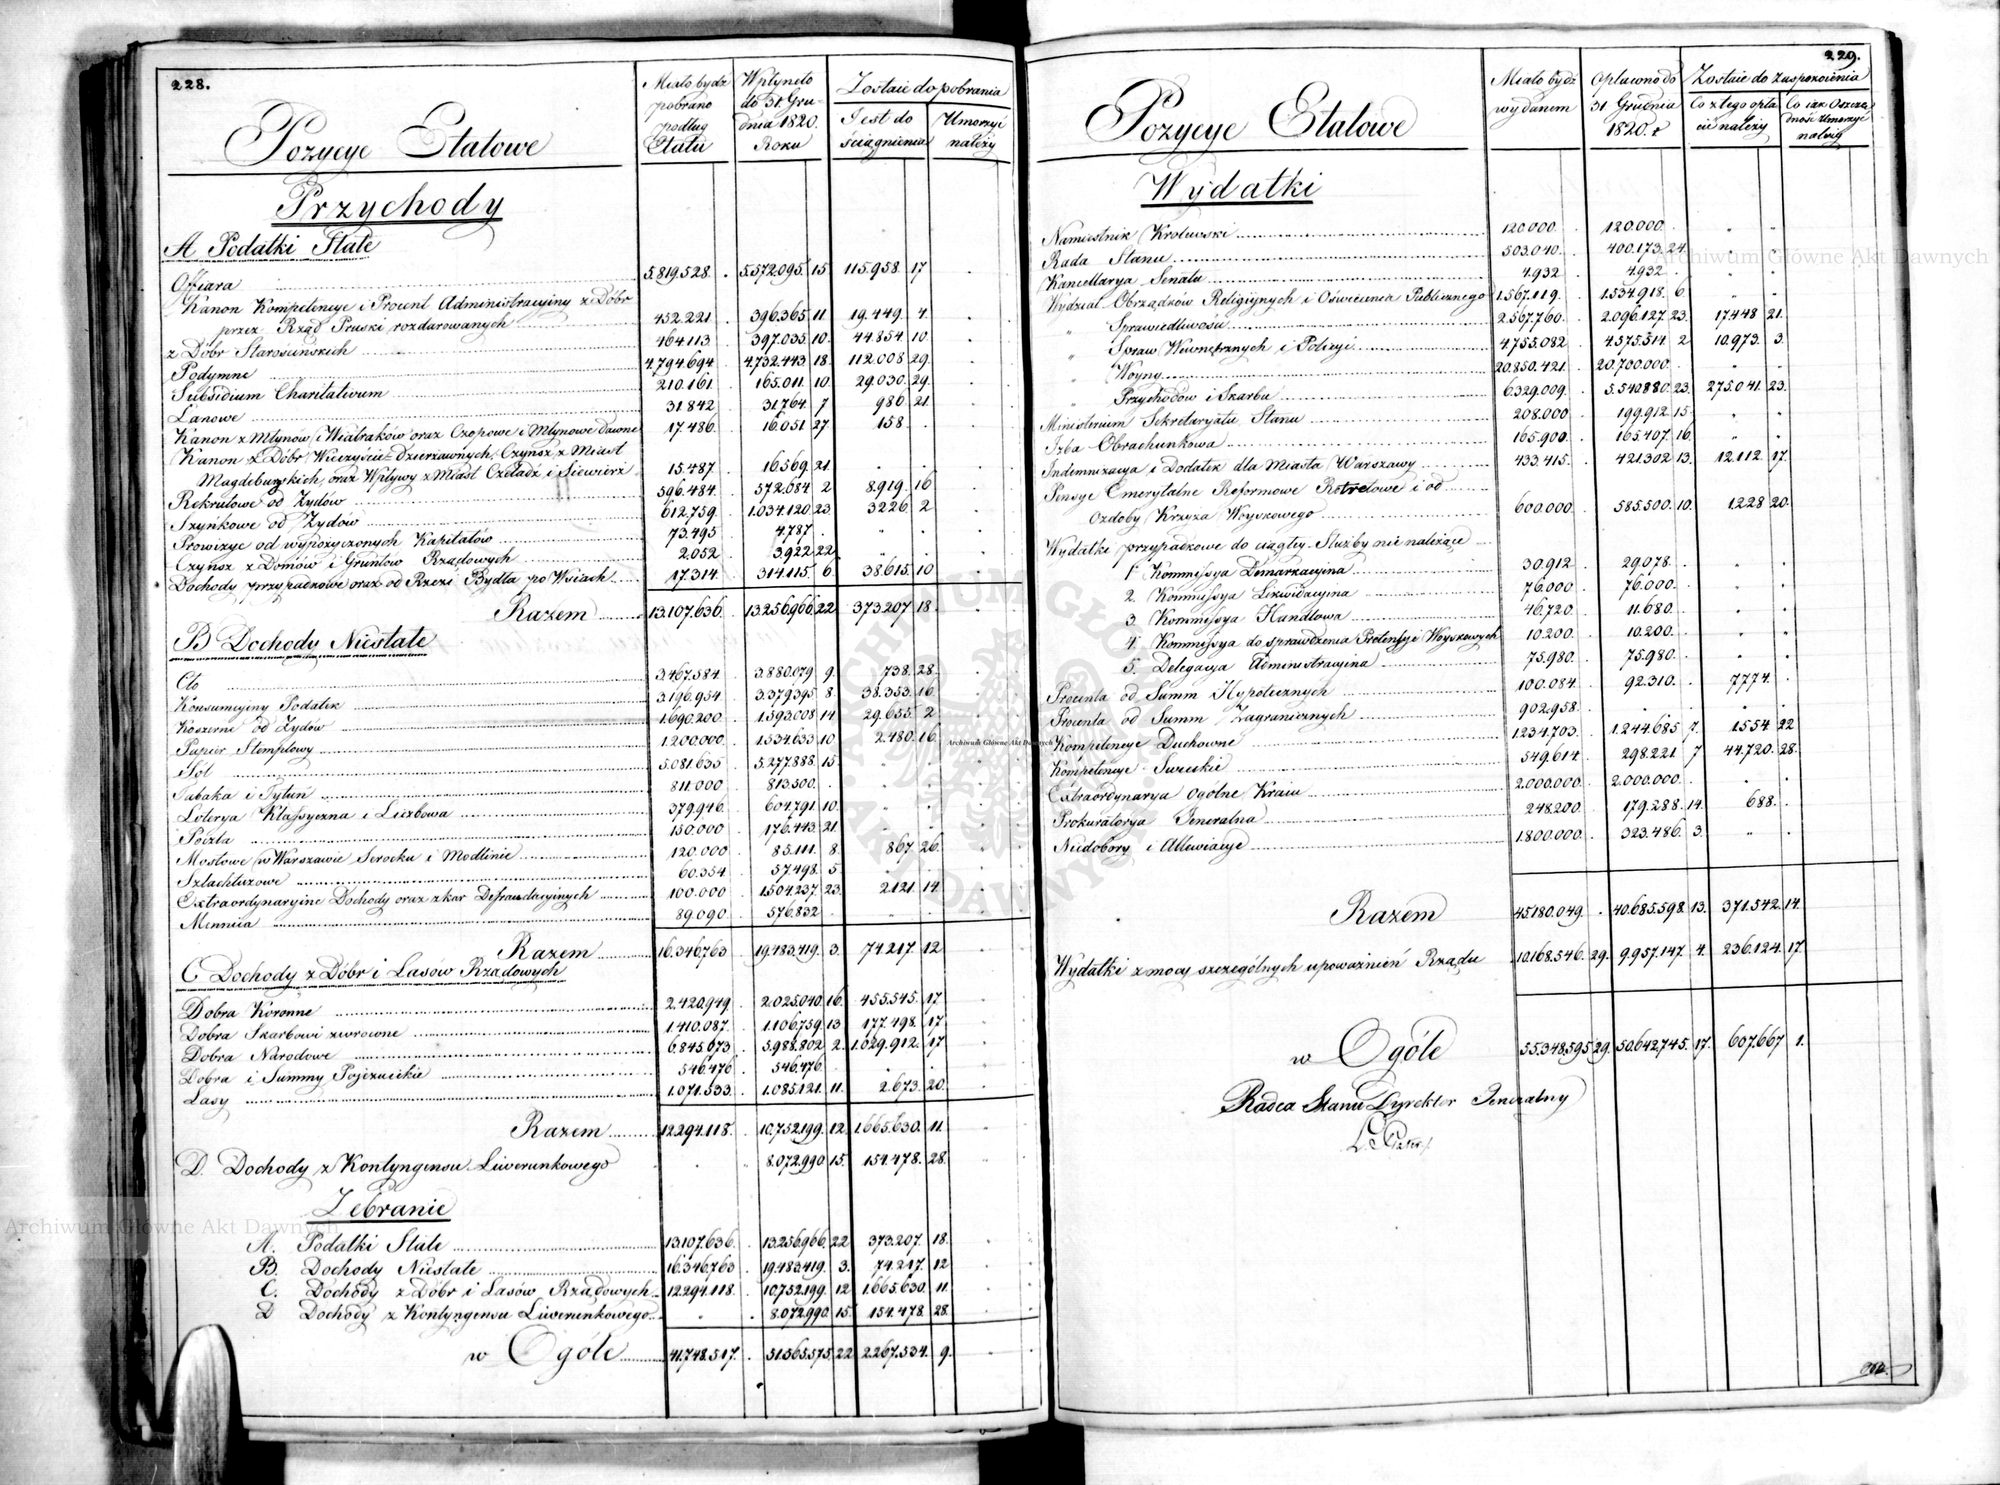 228.
Pozycye Etatowe
Miało bydź pobrano podług Etatu
Wpłynęło do 31 Grudnia 1820. Roku
Zostaie do pobrania
Jest do ściągnienia
Umorzyć należy
Przychody
A. Podatki Stałe
Offiara 5.819.528. . 5.572.095. 15 115.958. 17
Kanon Kompetencye i Procent Administracyiny z Dóbr
przez Rząd Pruski rozdarowanych 452.221. 396.365 11. 19.449. 4.
z Dóbr Starościńskich 464.113 397.035. 10. 44.854. 10.
Podymne 4.794.694 4.732.443 18. 112.008 29.
Subsidium Charitativum 210.161. 165.011. 10. 29.030. 29.
Łanowe 31.842 31.764. 7 986. 21.
Kanon z Młynów i Wiatraków oraz Czopowe i Młynowe dawne 17.486. 16.051 27. 158.
Kanon z Dóbr Wieczyście-dzierżawnych, Czynsz z Miast
Magdeburskich, oraz Wpływy z Miast Czeladź i Siewierz 15.487 16.569. 21.
Rekrutowe od Żydów 596.484. 572.684 2 8.919. 16
Szynkowe od Żydów 612.759. 1.034.120. 23. 3226. 2
Prowizye od wypożyczonych Kapitałów 73.495 4.787
Czynsz z Domów i Gruntów Rządowych 2.052 3.922 22.
Dochody przypadkowe oraz od Rzezi Bydła po Wsiach 17.314. 314.115. 6. 38.615. 10
Razem 13.107.636. 13.256.966. 22. 373.207. 18.
B Dochody Niestałe
Cło 3.467.584. 3.880.079 9. 738. 28.
Konsumcyiny Podatek 3.196.954 3.379.395 8. 38.353. 16.
Koszerne od Żydów 1.690.200 1.593.008 14. 29.655. 2
Papier Stemplowy 1.200.000. 1.534.653 10. 2.480. 16.
Sól 5.081.635 5.277.888. 15.
Tabaka i Tytuń 811.000 813.500.
Loterya Klassyczna i Liczbowa 379.946. 604.791. 10.
Poczta 150.000 176.443. 21.
Mostowe w Warszawie Serocku i Modlinie 120.000 85.111. 8. 867. 26.
Szlachtuzowe 60.354 57.498. 5.
Extraordynaryine Dochody oraz z kar Defraudacyinych 100.000 1.504.237 23. 2.121. 14.
Mennica 89.090. 576.832
Razem 16.346.763 19.483.419. 3. 74.217. 12
C Dochody z Dóbr i Lasów Rządowych
Dobra Koronne 2.420.949. 2.025.040. 16. 455.545. 17
Dobra Skarbowi zwrócone 1.410.087. 1.106.759. 13 177.498. 17
Dobra Narodowe 6.845.073 5.988.802 2. 1.029.912. 17
Dobra i Summy Pojezuickie 546.476 546.476.
Lasy 1.071.533. 1.085.121. 11. 2.673. 20.
Razem 12.294.118. 10.752.199. 12. 1.665.630. 11.
D. Dochody z Kontyngensu Liwerunkowego 8.072.990 15. 154.478. 28.
Zebranie
A. Podatki Stałe 13.107.636. 13.256.966. 22 373.207. 18.
B. Dochody Niestałe 16.346.763 19.483.419. 3. 74.217. 12
C. Dochody z Dóbr i Lasów Rządowych 12.294.118. 10.752.199. 12 1.665.630. 11.
D Dochody z Kontyngensu Liwerunkowego 8.072.990. 15. 154.478 28.
w Ogóle 41.748.517. 51.565.575. 22 2.267.534. 9.
229.
Pozycye Etatowe
Miało bydź wydanem
Opłacono do 31 Grudnia 1820. r
Zostaie do zaspokoienia
Co z tego opłacić należy
Co iak Oszczędność Umorzyć należy
Wydatki
Namiestnik Królewski 120.000. 120.000.
Rada Stanu 503.040. 400.173. 24.
Kancellarya Senatu 4.932 4.932
Wydział Obrządków Religiynych i Oświecenia Publicznego 1.567.119. 1.534.918. 6.
" Sprawiedliwości 2.567.760. 2.096.127. 23. 17.448 21.
" Spraw Wewnętrznych i Policyi 4.755.082 4.575.514. 2 10.973. 3.
" Woyny 20.850.421. 20.700.000.
" Przychodów i Skarbu 6.329.009. 5.540.880. 23. 275.041. 23.
Ministerium Sekretaryatu Stanu 208.000 199.912 15.
Izba Obrachunkowa 165.900. 165.407. 16.
Indemnizacya i Dodatek dla Miasta Warszawy 433.415. 421.302 13. 12.112 17.
Pensye Emerytalne Reformowe Retretowe i od
Ozdoby Krzyża Woyskowego 600.000. 585.500. 10. 1228 20.
Wydatki przypadkowe do ciągłey Służby nie należące
1. Kommissya Demarkacyina 30.912. 29.078.
2. Kommissya Likwidacyina 76.000. 76.000.
3. Kommissya Handlowa 46.720. 11.680.
4. Kommissya do sprawdzenia Pretensyi Woyskowych 10.200. 10.200.
5. Delegacya Administracyina 75.980. 75.980.
Procenta od Summ Hypotecznych 100.084. 92.310. 7774.
Procenta od Summ Zagranicznych 902.958.
Kompetencye Duchowne 1.234.703. 1.244.685 7. 1554 22
Kompetencye Świeckie 549.614. 298.221. 7 44.720. 28.
Extraordynarya ogólne Kraiu 2.000.000. 2.000.000.
Prokuratorya Jeneralna 248.200. 179.288. 14. 688.
Niedobory i Allewiacye 1.800.000. 323.486. 3.
Razem 45.180.049. 40.685.598. 13. 371.542. 14.
Wydatki z mocy szczególnych upoważnień Rządu 10.168.546. 29. 9.957.147. 4. 236.124. 17.
w Ogóle 55.348.595 29. 50.642.745. 17. 607.667 1.
Radca Stanu Dyrektor Jeneralny
Archiwum Główne Akt Dawnych
Archiwum Główne Akt Dawnych
Archiwum Główne Akt Dawnych
ARCHIWUM GŁÓWNE AKT DAWNYCH